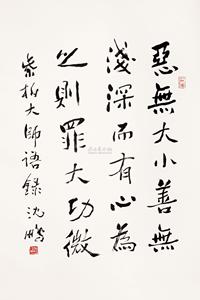 惡無大小善無
淺深而有心為
之則罪大功微
紫柏大師語錄 沈鵬